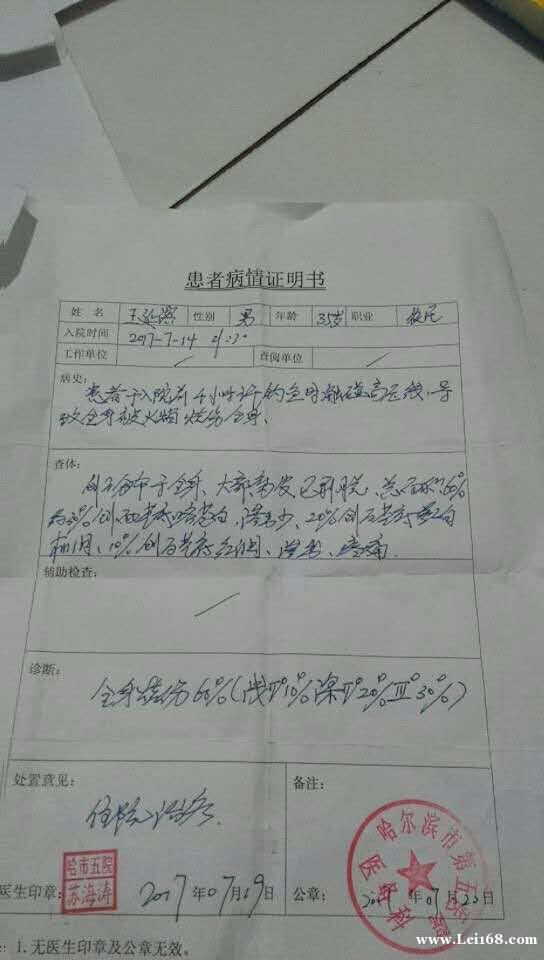 患者病情证明书
姓名 性别 男 年龄 35岁 职业
入院时间 2017-7-14
工作单位 / 查阅单位 /
病史:
患者于入院前4小时许钓鱼时触碰高压线,导
致全身被火焰烧伤全身。
查体:
创面分布于全身、大部 已剥脱、总面积约60%
约30%创面基底 苍白,渗出少、20%创面基底红白
相间、10%创面基底红润、渗出、疼痛.
辅助检查:
/
诊断:
全身烧伤60%(浅II°10%深II°20%III°30%)
处置意见:
住院治疗
备注:
哈市五院
苏海涛
医生印章: 2017年07月19日
哈尔滨市第五医院
医务科
公章: 2017年07月23日
1.无医生印章及公章无效。
www.Lei68.com